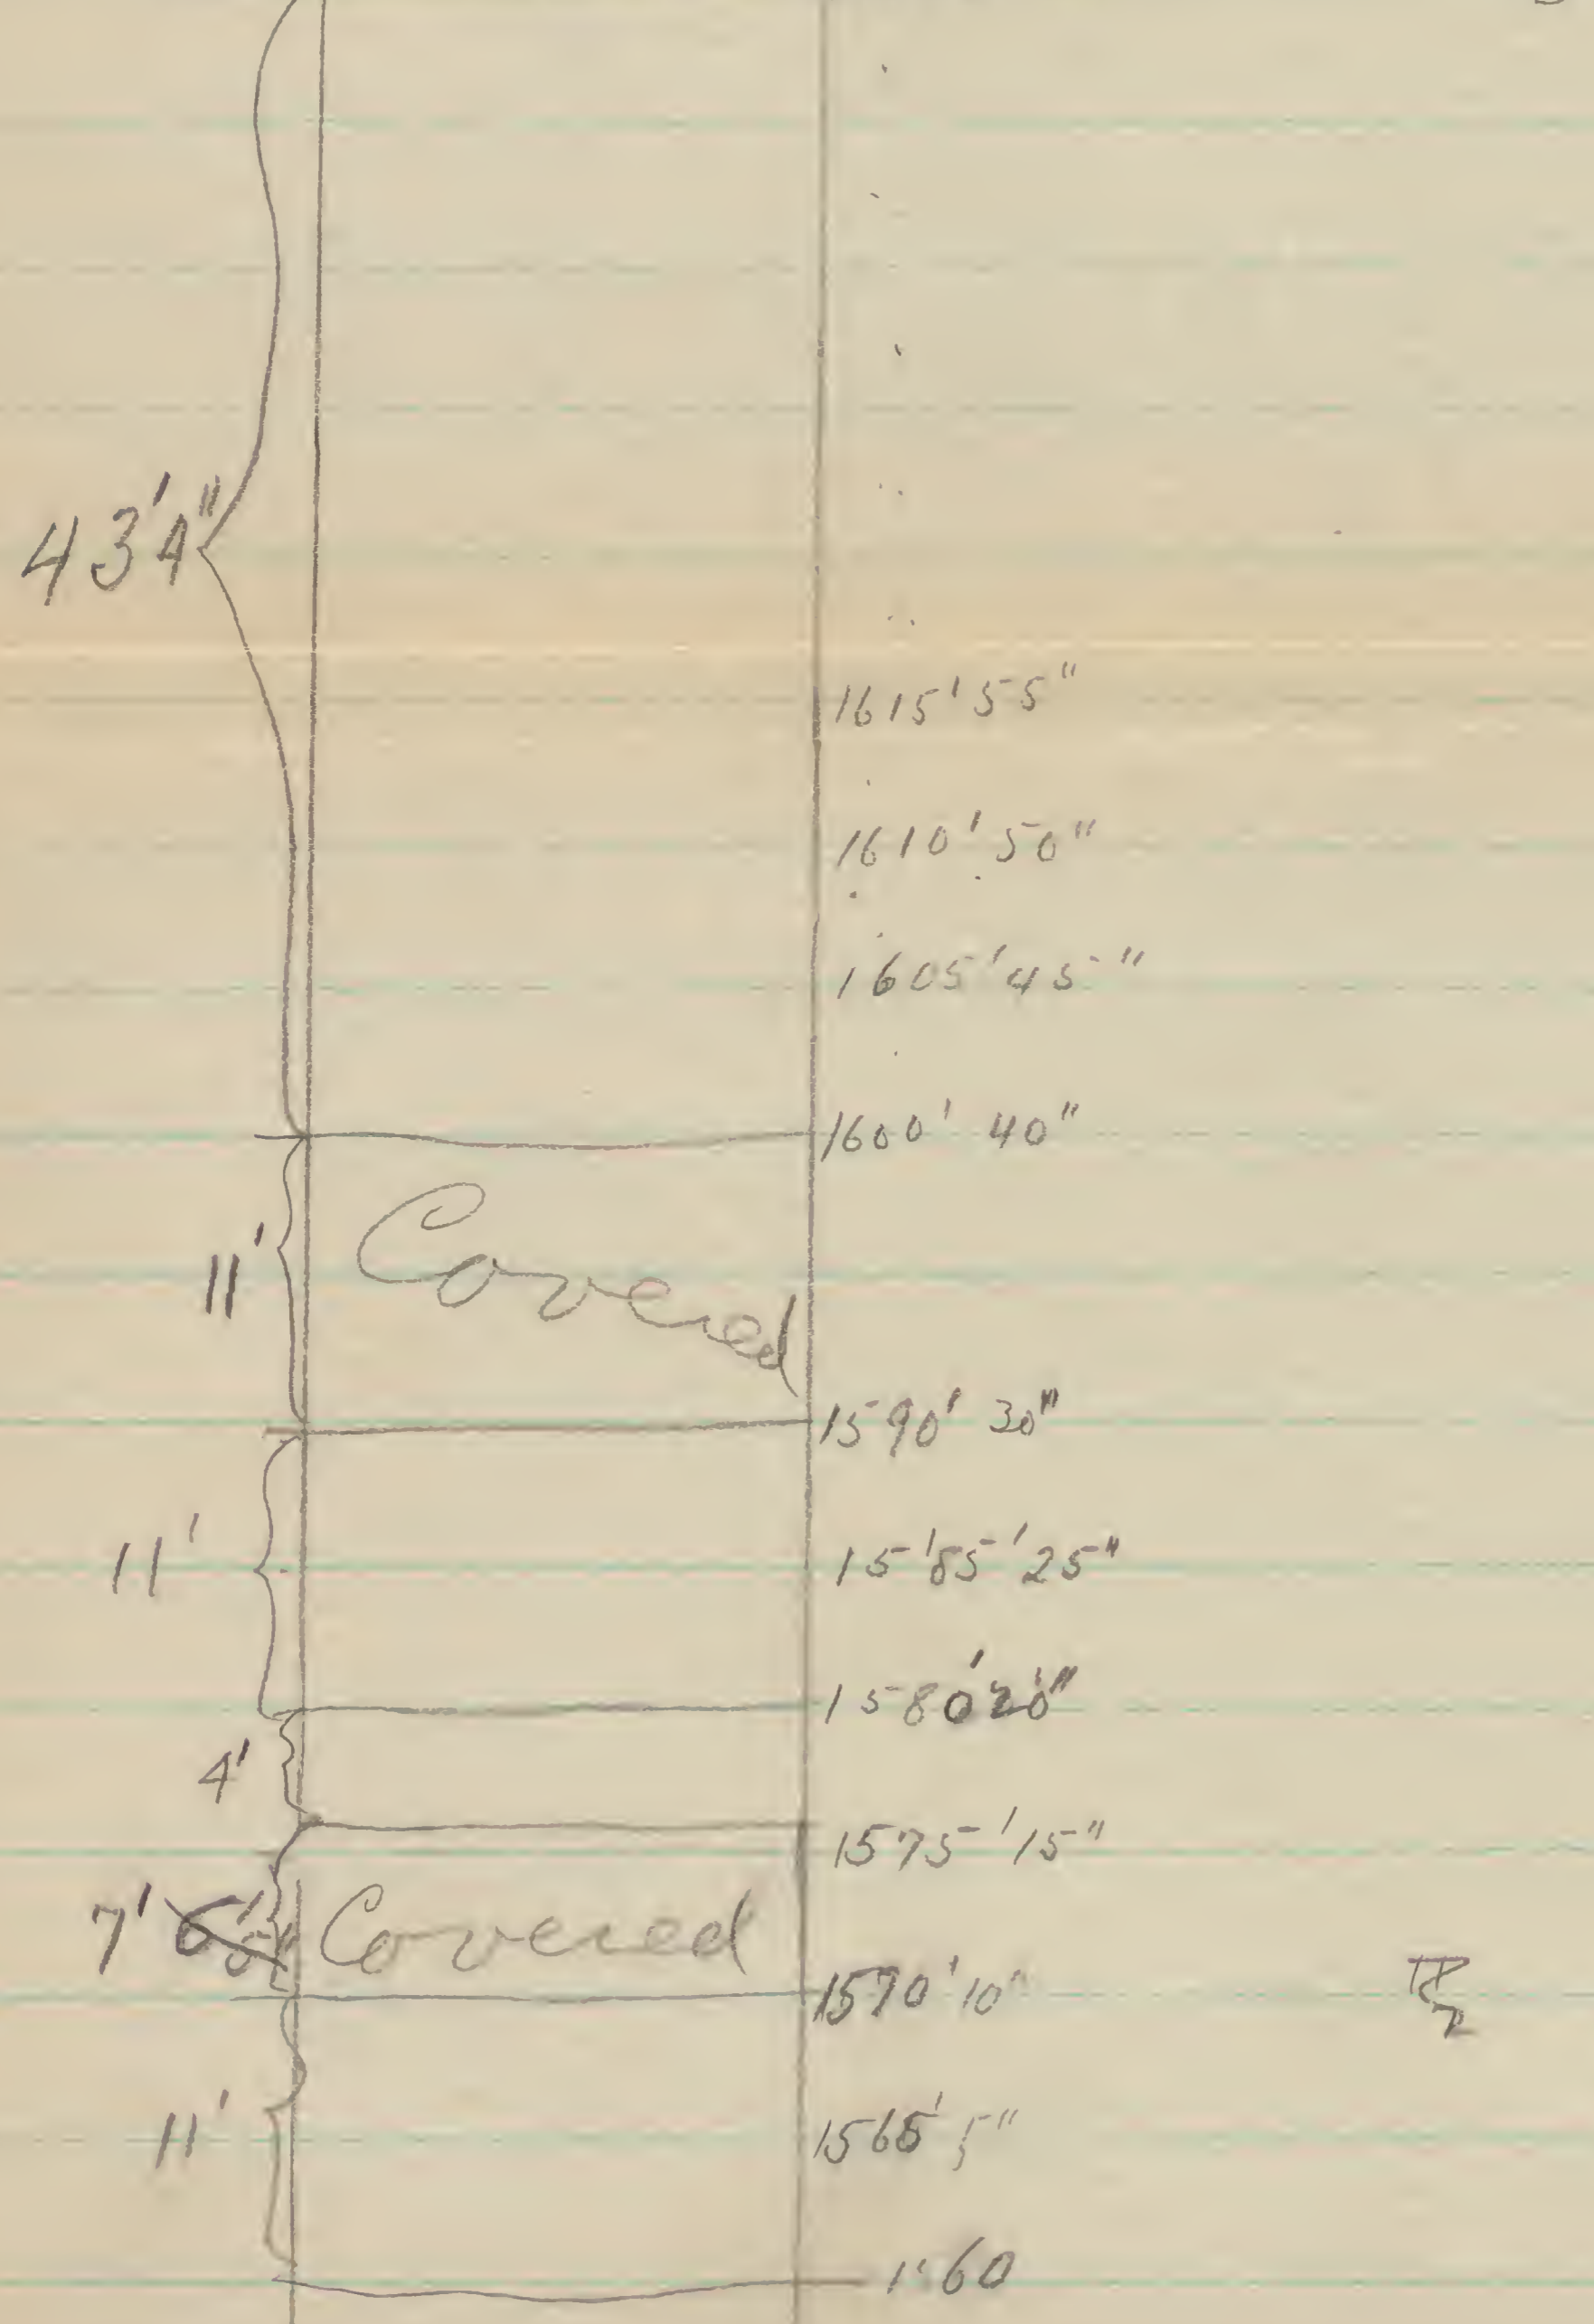 43'4"
1615' 55"
1610' 50"
1605' 45"
1600' 40"
11' Covered
1590' 30"
11' 1585' 25"
1580' 20"
4'
1575' 15"
7' Covered
1570' 10"
11' 1565' 5"
1560